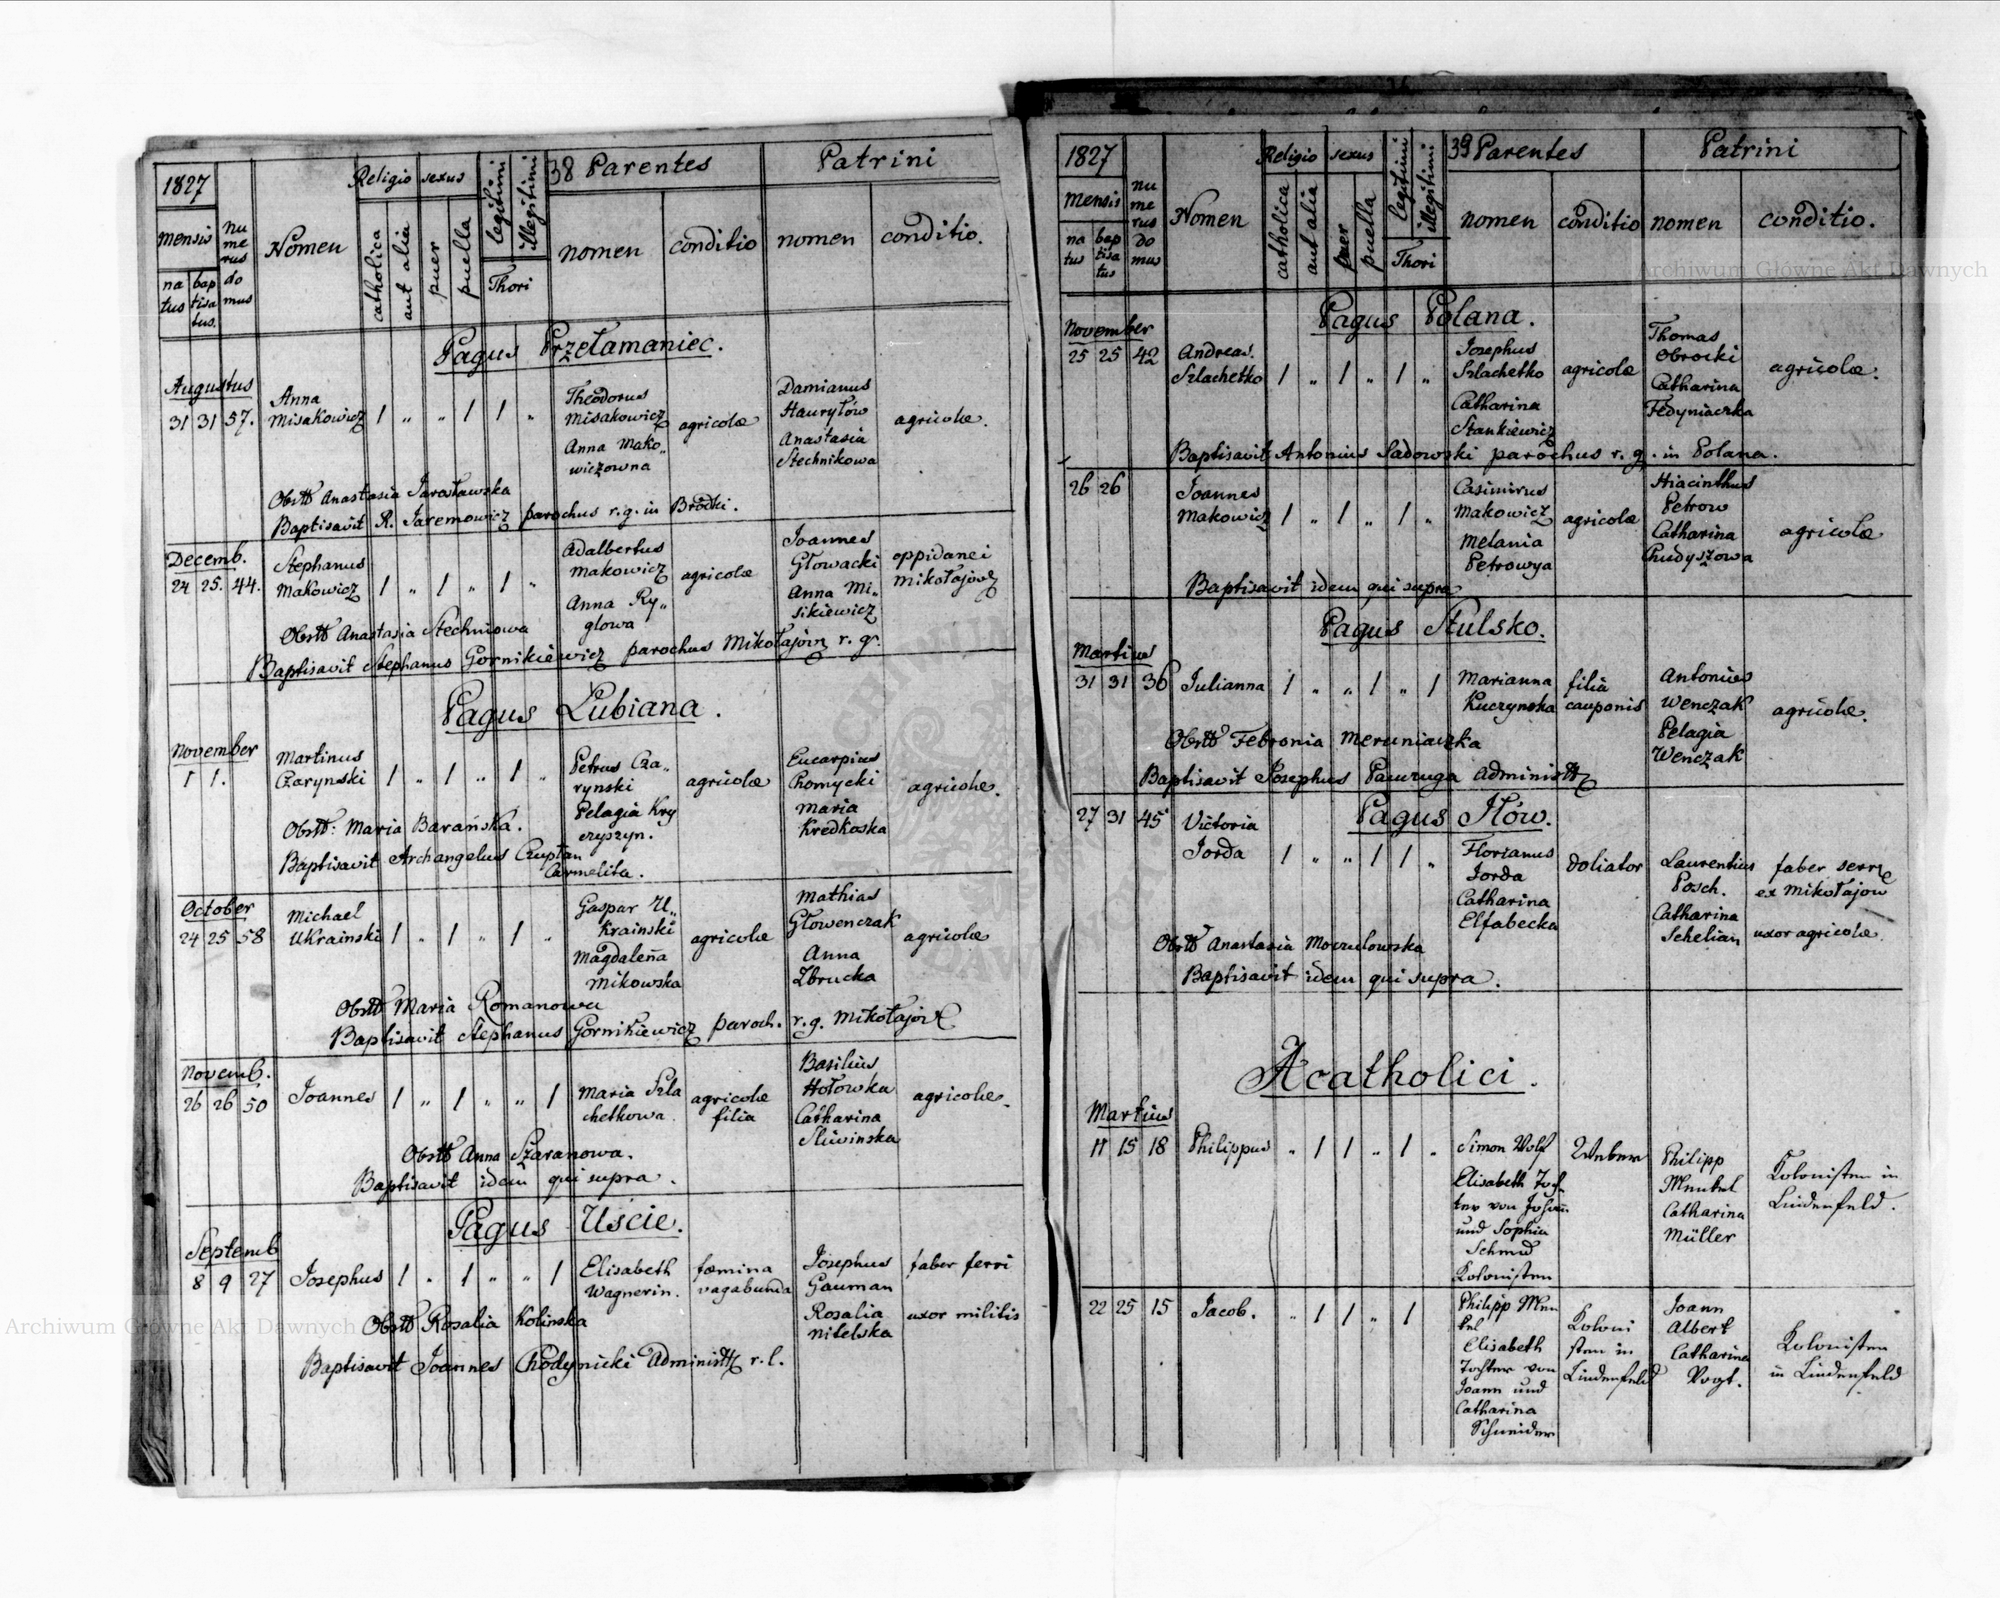 1827
Religio sexus
legitimi
illegitimi
38 Parentes
Patrini
mensis
nu
me
rus
do
mus
Nomen
catholica
aut alia
puer
puella
Thori
nomen
conditio
nomen
conditio.
na
tus
bap
tisa
tus.
Pagus Przełamaniec.
Augustus
31 31 57.
Anna
Misakowicz
1 „ „ 1 1 „
Theodorus
Misakowicz
Anna Mako„
wiczowna
agricolæ
Damianus
Hauryłów
Anastasia
Stechnikowa
agricolæ.
Obstt Anastasia Jarosławska
Baptisavit R. Jaremowicz parochus r. g. in Brodki.
Decemb.
24 25. 44.
Stephanus
Makowicz
1 „ 1 „ 1 „
Adalbertus
Makowicz
Anna Ry„
glowa
agricolæ
Joannes
Głowacki
Anna Mi„
sikiewicz
oppidanei
Mikołajov
Obstt Anastasia Stechniowa
Baptisavit Stephanus Gornikiewicz parochus Mikołajov r. gr.
Pagus Lubiana.
November
1 1.
Martinus
Czarynski
1 „ 1 „ 1 „
Petrus Cza„
rynski
Pelagia Kry
czyszyn.
agricolæ
Eucarpius
Chomycki
Maria
Kredkoska
agricolæ.
Obstt: Maria Barańska.
Baptisavit Archangelus Czuptan
Carmelita.
October
24 25 58
Michael
Ukrainski
1 „ 1 „ 1 „
Gaspar U„
krainski
Magdalena
Mikowska
agricolæ
Mathias
Głowenczak
Anna
Zbrucka
agricolæ
Obstt Maria Romanowa
Baptisavit Stephanus Gornikiewicz paroch. r. g. Mikołajov
Novemb.
26 26 50
Joannes
1 „ 1 „ „ 1
Maria Szla
chetkowa.
agricolæ
filia
Basilius
Hołowka
Catharina
Sliwinska
agricolæ.
Obstt Anna Szaranowa.
Baptisavit idem qui supra.
Pagus Uscie.
Septemb
8 9 27
Josephus
1 „ 1 „ „ 1
Elisabeth
Wagnerin.
fœmina
vagabunda
Josephus
Gauman
Rosalia
Nitelska
faber ferri
uxor militis
Obstt Rosalia Kolinska
Baptisavit Joannes Chodynicki Administ r. l.
1827
Religio sexus
legitimi
illegitimi
39 Parentes
Patrini
mensis
nu
me
rus
do
mus
Nomen
catholica
aut alia
puer
puella
Thori
nomen
conditio
nomen
conditio.
na
tus
bap
tisa
tus
Archiwum Główne Akt Dawnych
Pagus Polana.
November
25 25 42
Andreas.
Szlachetko
1 „ 1 „ 1 „
Josephus
Szlachetko
Catharina
Stankiewicz
agricolæ
Thomas
Obrocki
Catharina
Fedyniaczka
agricolæ.
Baptisavit Antonius Sadowski parochus r. g. in Polana.
26 26
Joannes
Makowicz
1 „ 1 „ 1 „
Casimirus
Makowicz
Melania
Petrowya
agricolæ
Hiacinthus
Petrow
Catharina
Chudyszowa
agricolæ
Baptisavit idem qui supra
Pagus Stulsko.
Martius
31 31 36
Julianna
1 „ „ 1 „ 1
Marianna
Kuczynska
filia
cauponis
Antonius
Wenczak
Pelagia
Wenczak
agricolæ.
Obstt Febronia Meruniaczka
Baptisavit Josephus Pawruga Administ
Pagus Iłów.
27 31 45
Victoria
Jorda
1 „ „ 1 1 „
Florianus
Jorda
Catharina
Elfabecka
doliator
Laurentius
Posch.
Catharina
Schelian
faber serræ
ex Mikołajow
uxor agricolæ.
Obstt Anastasia Mowulowska
Baptisavit idem qui supra.
Acatholici.
Martius
11 15 18
Philippus
„ 1 1 „ 1 „
Simon Wolf
Elisabeth Toch
ter von Johann
und Sophia
Schmid
Kolonisten
Weber
Philipp
Menkel
Catharina
Müller
Kolonisten in
Lindenfeld.
22 25 15
Jacob.
„ 1 1 „ 1
Philipp Men
kel
Elisabeth
Tochter von
Joann und
Catharina
Schneider
Koloni
sten in
Lindenfeld
Joann
Albert
Catharina
Vogt.
Kolonisten
in Lindenfeld
Archiwum Główne Akt Dawnych